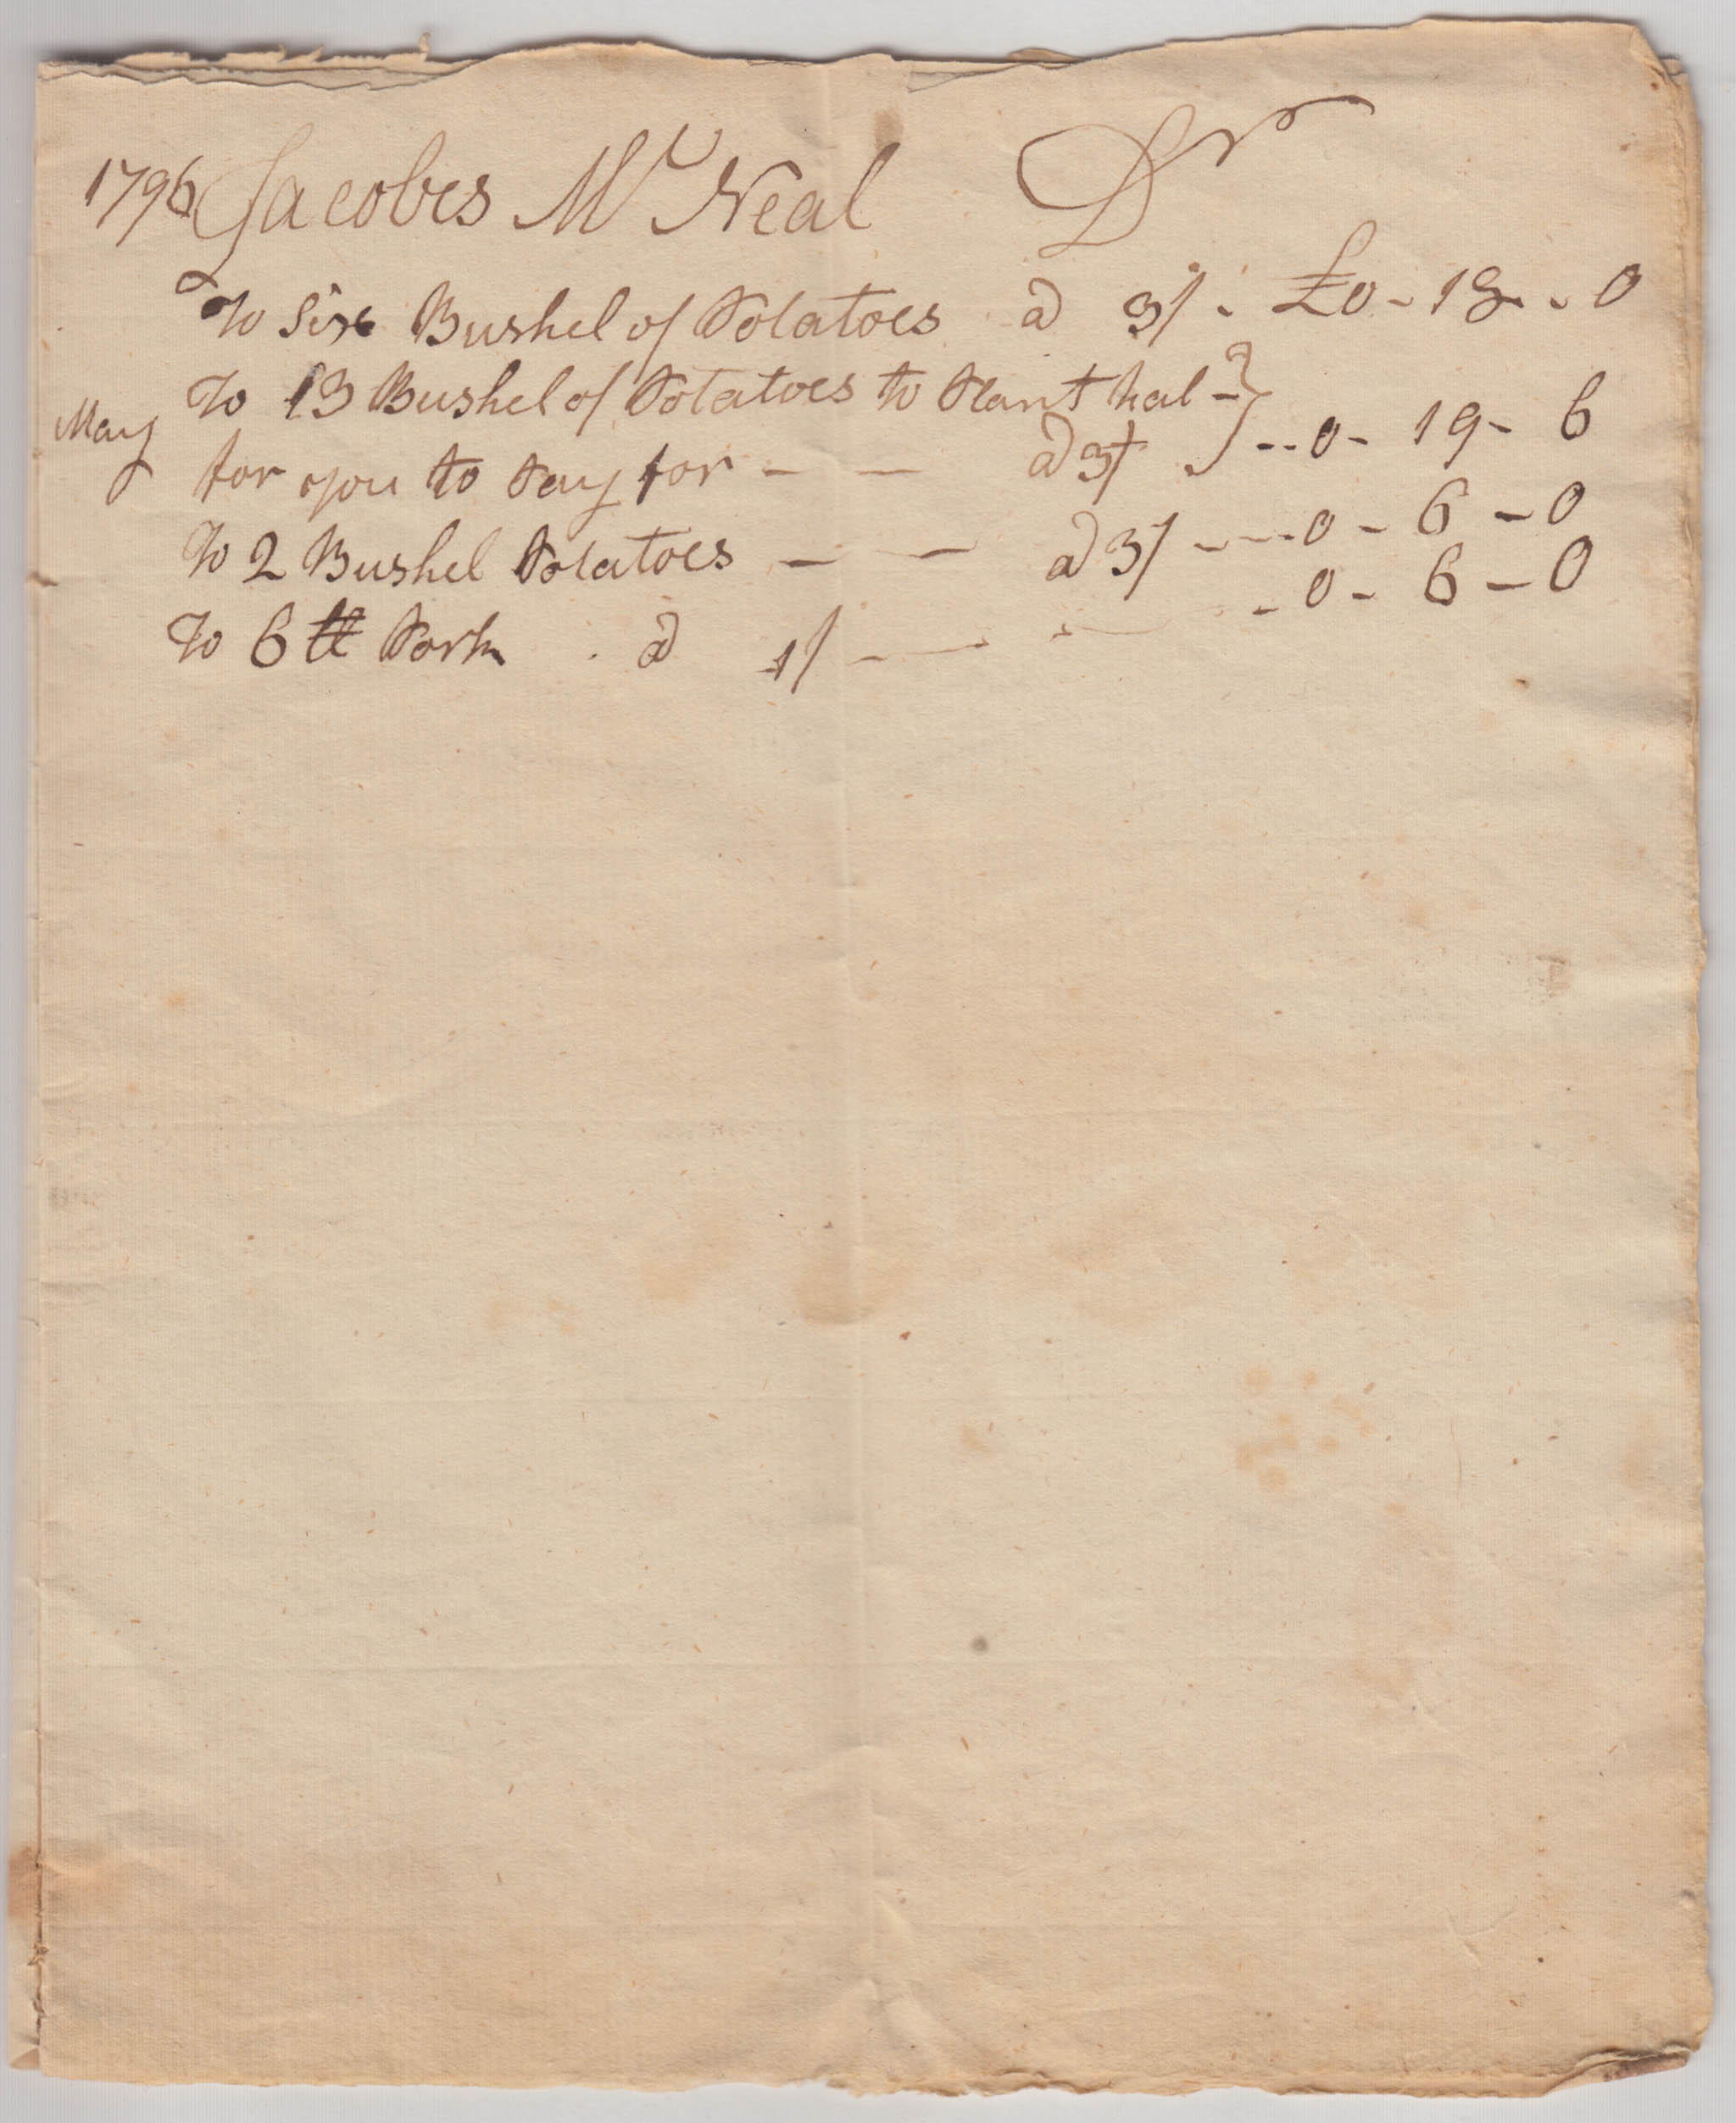 1796 Jacobes Mc Neal Dr
To Six Bushel of Potatoes a 3/ - £0 - 18 - 0
To 13 Bushel of Potatoes to Plant hal -
May for you to Pay for - - a 3/ } - - 0 - 19 - 6
To 2 Bushel Potatoes - - a 3/ - - - 0 - 6 - 0
To 6 lb Pork a 1/ - - - 0 - 6 - 0